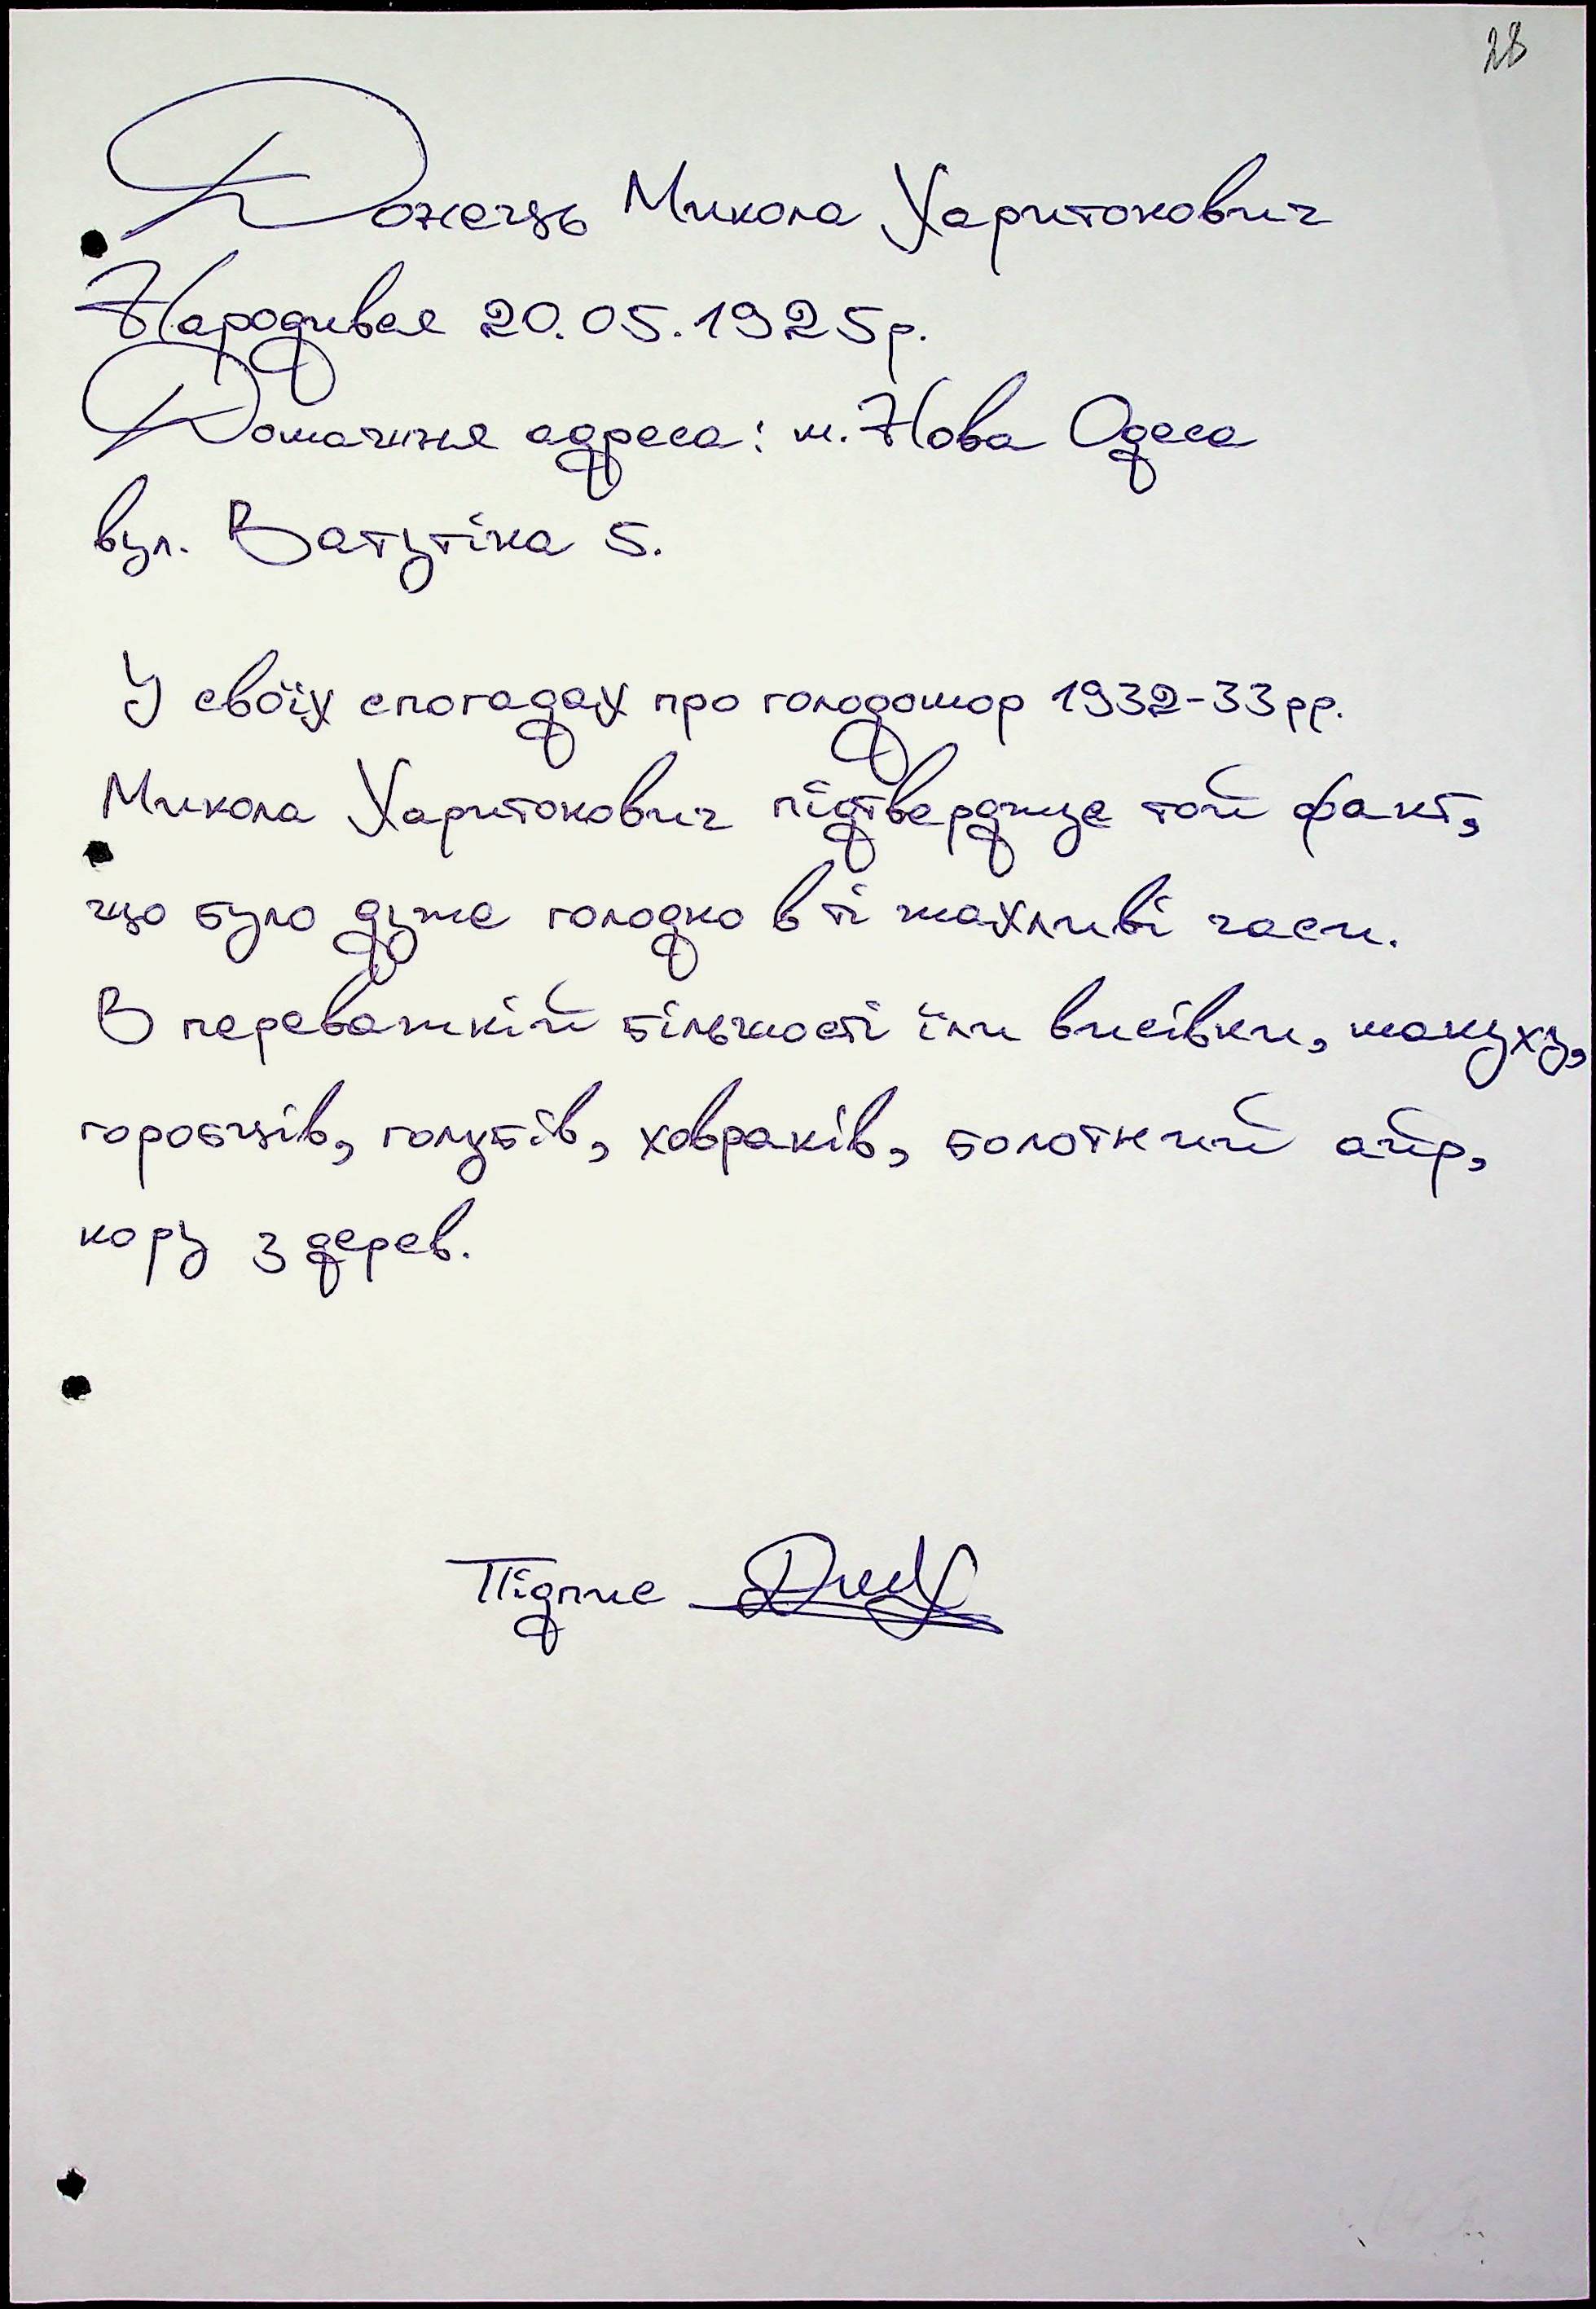 28
Донець Микола Харитонович
Народився 20.05.1925р.
Домашня адреса: м. Нова Одеса
вул. Ватутіна 5.
У своїх спогадах про голодомор 1932-33рр.
Микола Харитонович підтверджує той факт,
що було дуже голодно в ті жахливі часи.
В переважній більшості їли висівки, макуху,
горобців, голубів, ховраків, болотний аїр,
кору з дерев.
Підпис